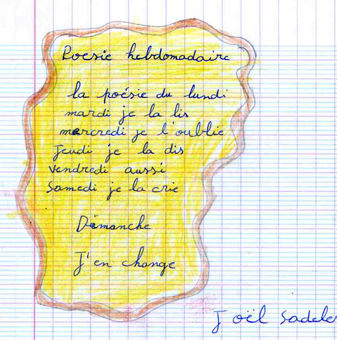 Poesie hebdomadaire
la poésie du lundi
mardi je la lis
mercredi je l'oublie
Jeudi je la dis
Vendredi aussi
Samedi je la crie
Dimanche
J'en change
Joël Sadeler